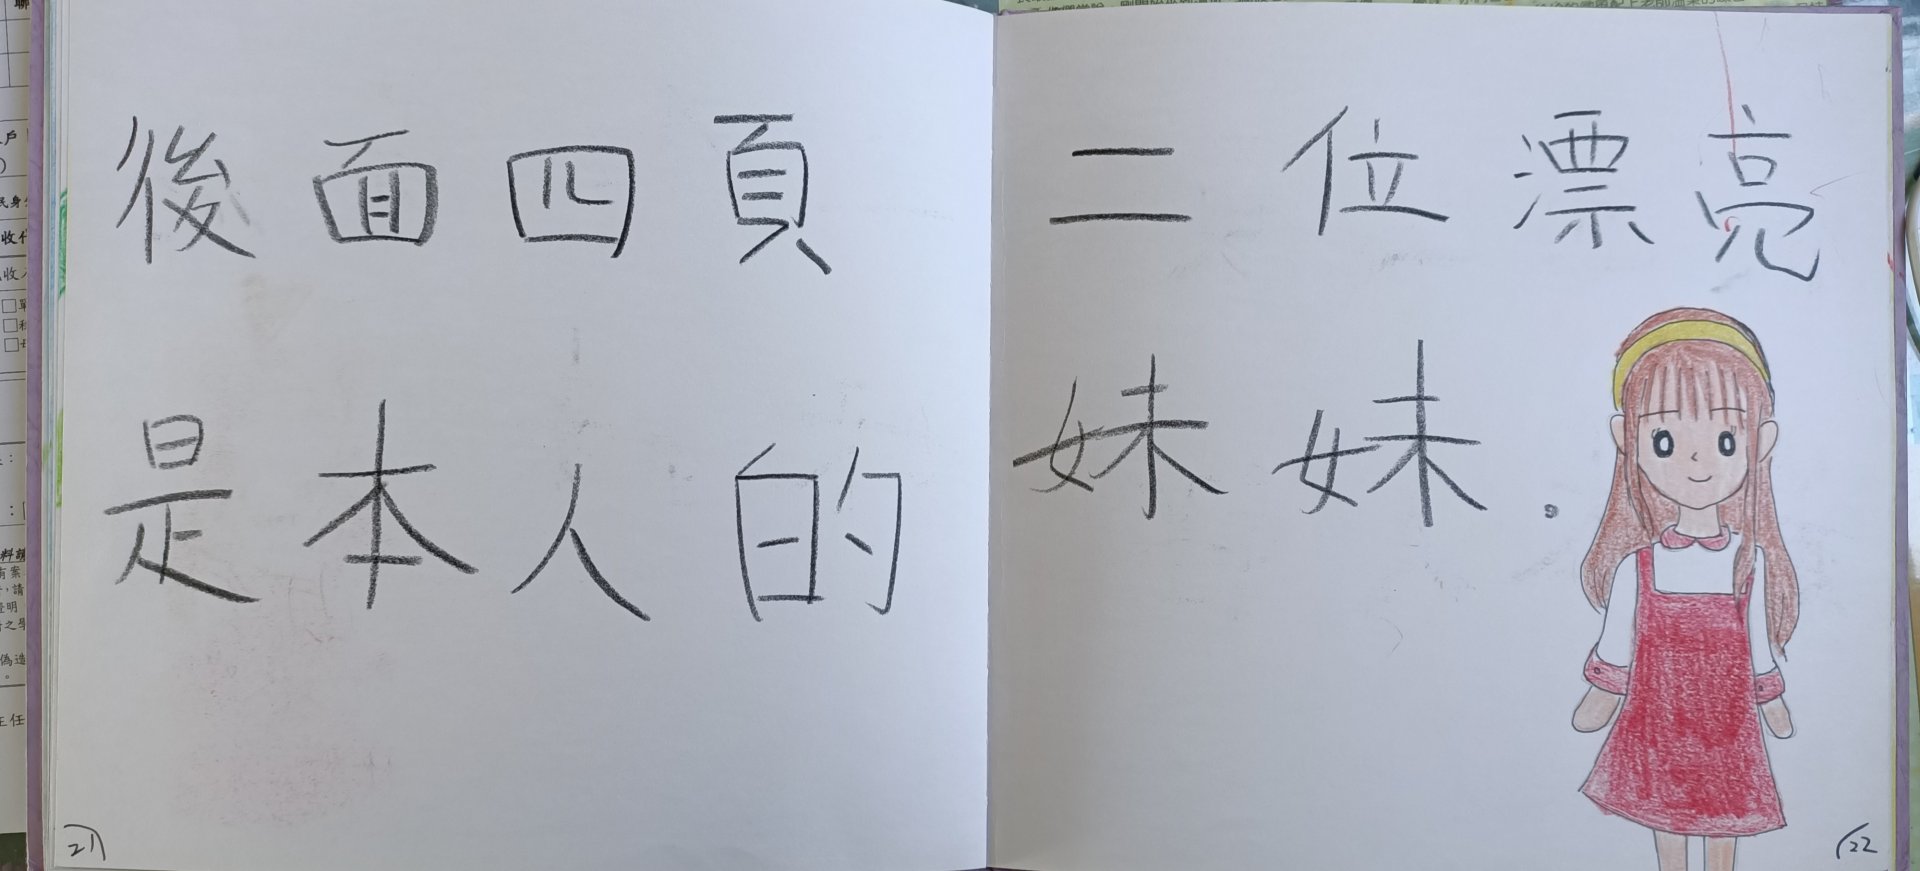 後面四頁
是本人的
21
二位漂亮
妹妹。
22